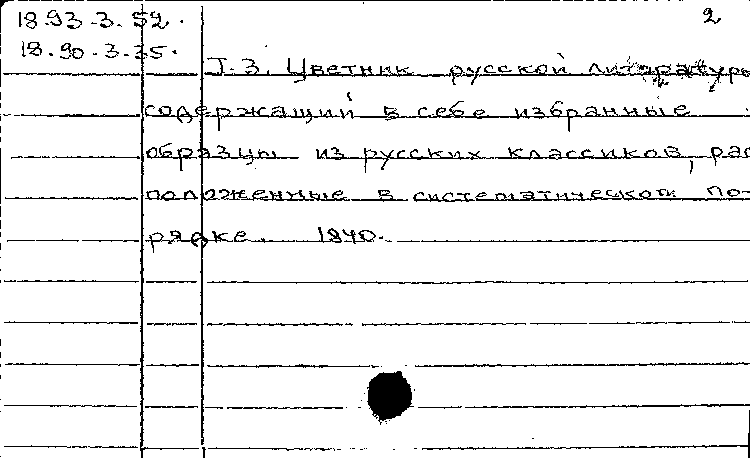 18.93.3.52. 2
18.90.3.35.
Т.3. Цветник русской литературы
содержащий в себе избранные
образцы из русских классиков, рас
положенные в систематическом по-
рядке. 1840.